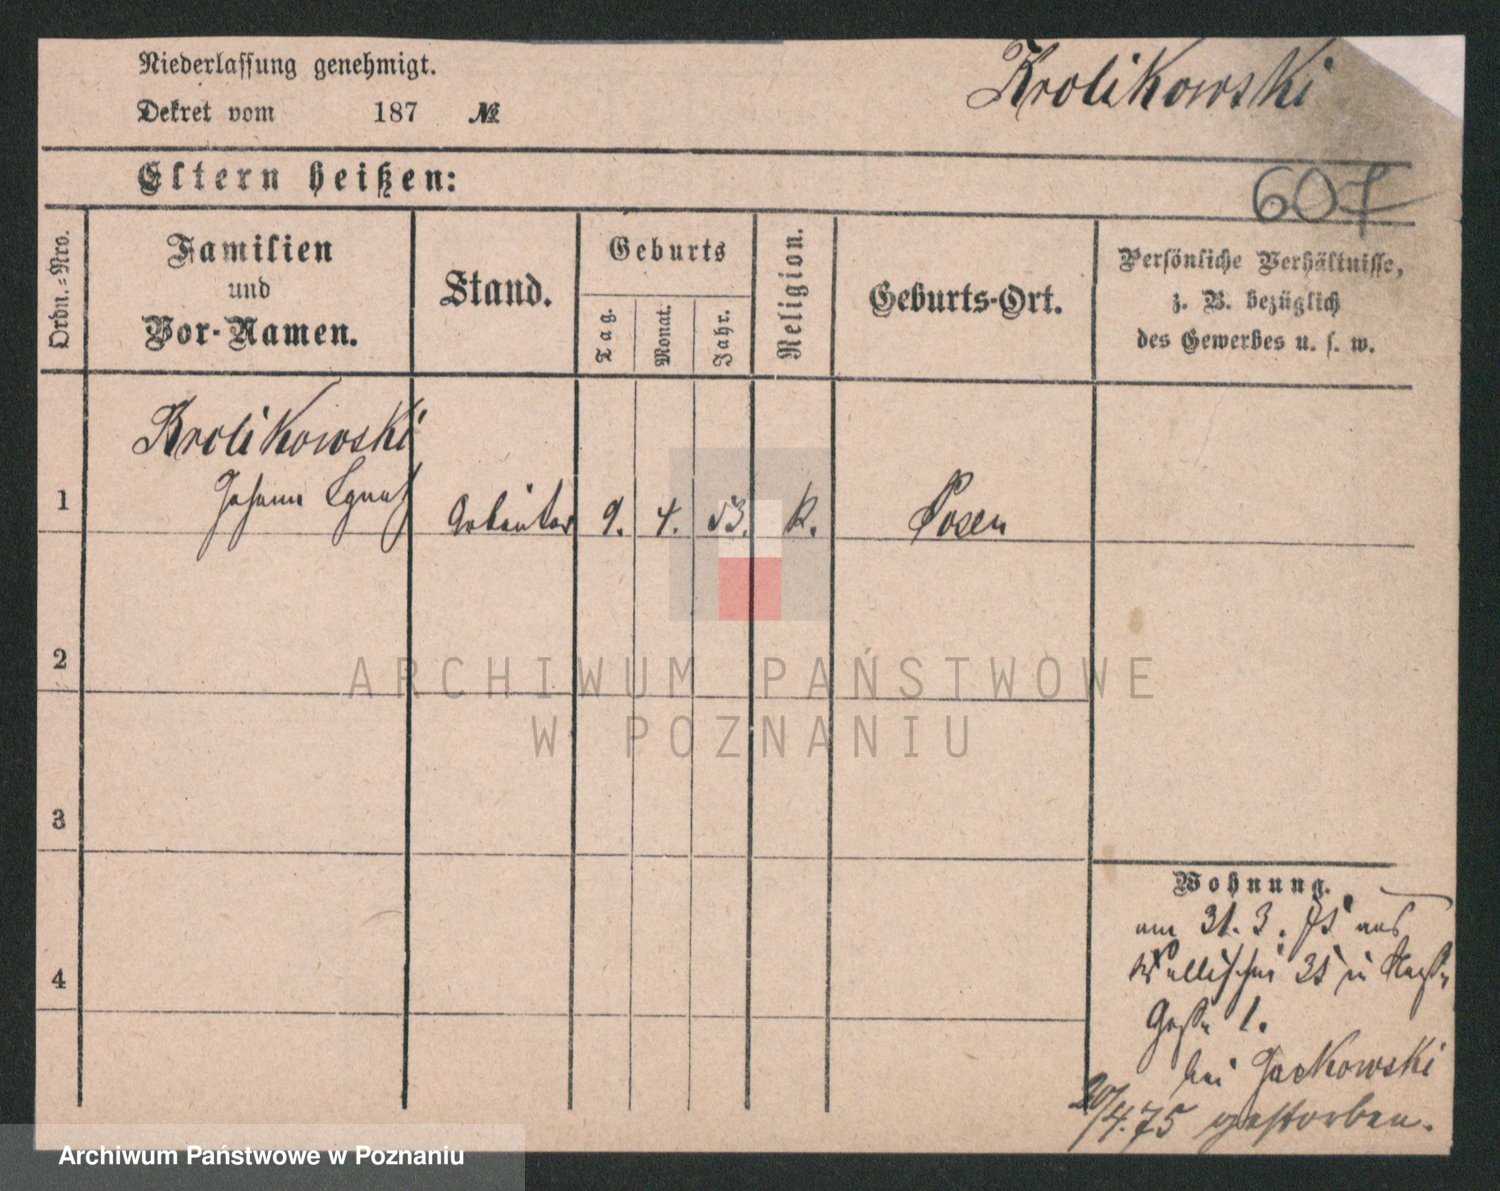 Niederlassung genehmigt.
Krolikowski
Dekret vom 187 №
Eltern heißen:
607
Ordn.-Nro.
Familien
und
Vor-Namen.
Stand.
Geburts
Tag.
Monat.
Jahr.
Religion.
Geburts-Ort.
Persönliche Verhältnisse,
z. B. bezüglich
des Gewerbes u. s. w.
Krolikowski
1 Johann Ignaz Arbeiter 9. 4. 53. k. Posen
2
ARCHIWUM PAŃSTWOWE
W POZNANIU
3
4
Wohnung.
am 31. 3. 75 aus
Wallischei 35 in
Gasse 1.
bei Jackowski
20/4.75 gestorben.
Archiwum Państwowe w Poznaniu